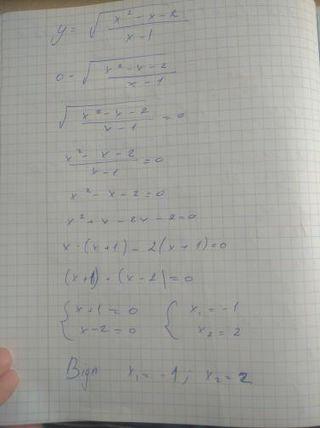 y = √(x² - x - 2 / x - 1)
0 - √(x² - x - 2 / x - 1)
√(x² - x - 2 / x - 1) = 0
x² - x - 2 / x - 1 = 0
x² - x - 2 = 0
x² + x - 2x - 2 = 0
x · (x + 1) - 2(x + 1) = 0
(x + 1) · (x - 2) = 0
{ x + 1 = 0 { x₁ = -1
x - 2 = 0 x₂ = 2
Відп x₁ = -1; x₂ = 2